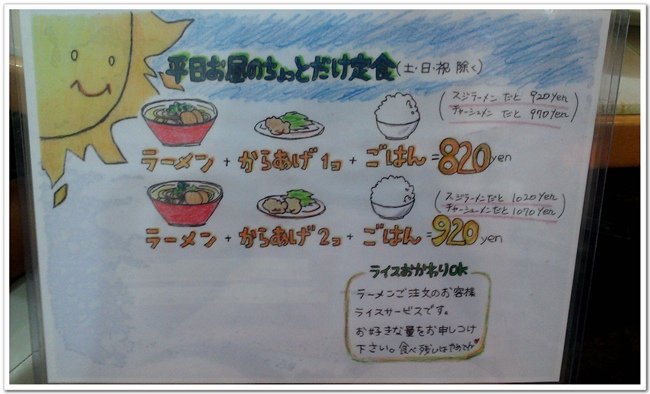 平日お昼のちょっとだけ定食(土・日・祝 除く)
(スジラーメン だと 920yen
チャーシューメン だと 970yen)
ラーメン + からあげ 1コ + ごはん = 820yen
(スジラーメンだと 1020yen
チャーシューメンだと 1070yen)
ラーメン + からあげ 2コ + ごはん = 920yen
ライスおかわりOK
ラーメンご注文のお客様
ライスサービスです。
お好きな量をお申しつけ
下さい。食べ残しはやめてネ♥